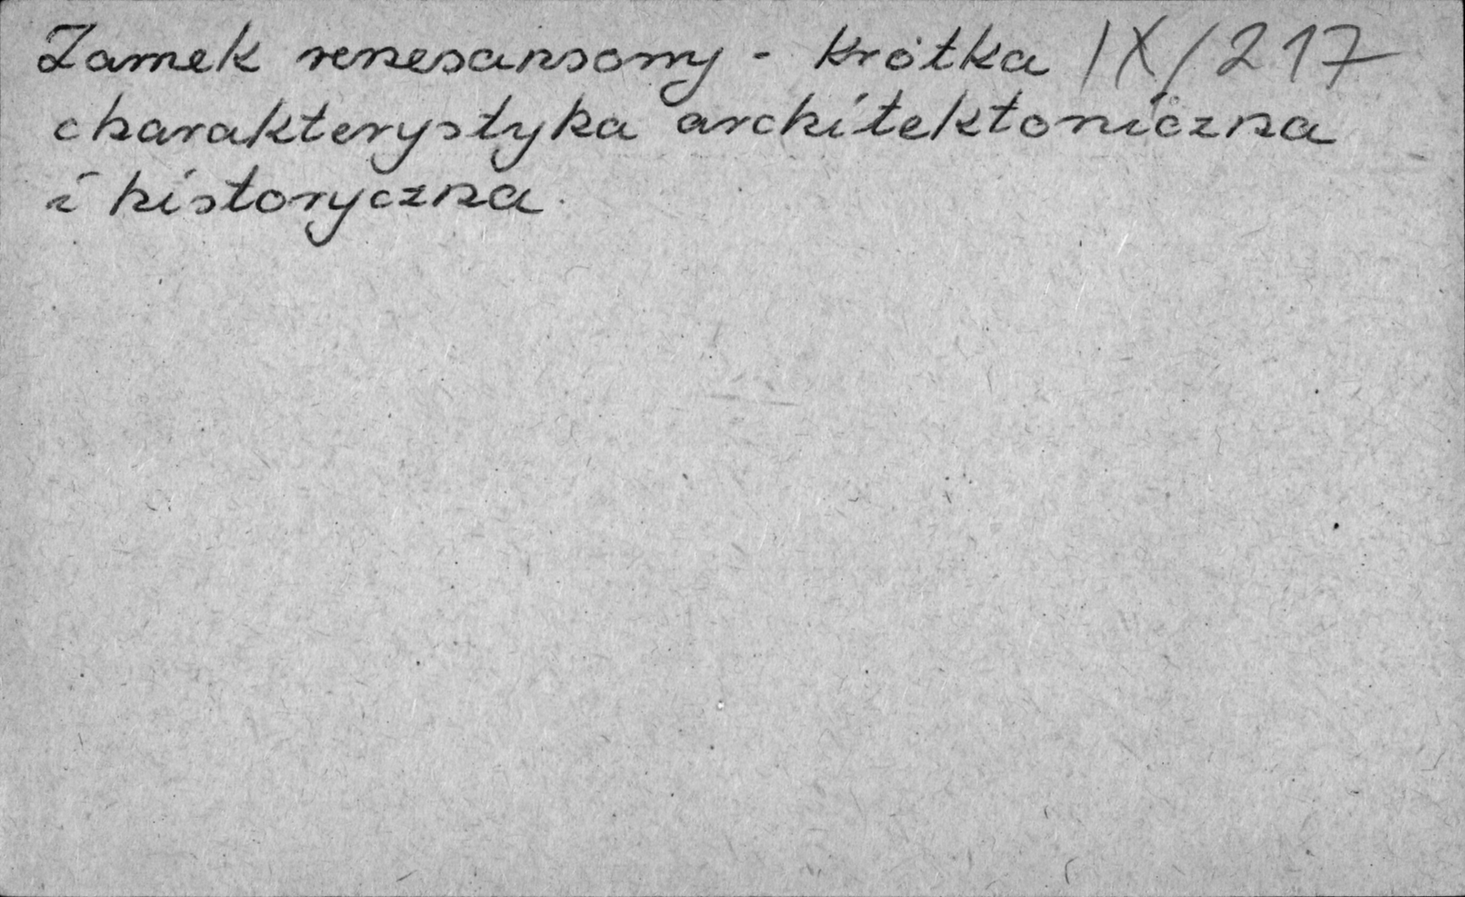 Zamek renesansowy - krótka IX/217
charakterystyka architektoniczna
i historyczna.